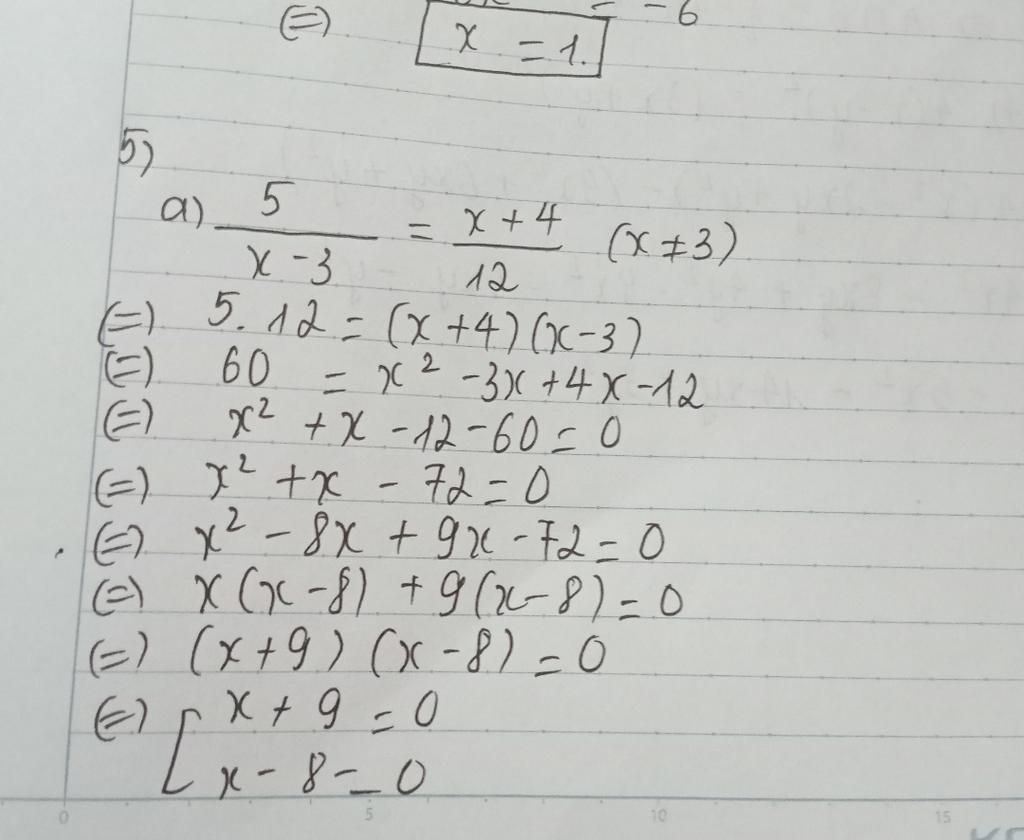 = -6
(=) x = 1.
5)
a) 5/(x-3) = (x+4)/12 (x≠3)
(=) 5.12 = (x+4)(x-3)
(=) 60 = x² -3x+4x-12
(=) x² +x -12-60 = 0
(=) x² +x - 72 = 0
(=) x² - 8x + 9x - 72 = 0
(=) x(x-8) + 9(x-8) = 0
(=) (x+9) (x-8) = 0
(=) [ x + 9 = 0
x - 8 = 0
0 5 10 15